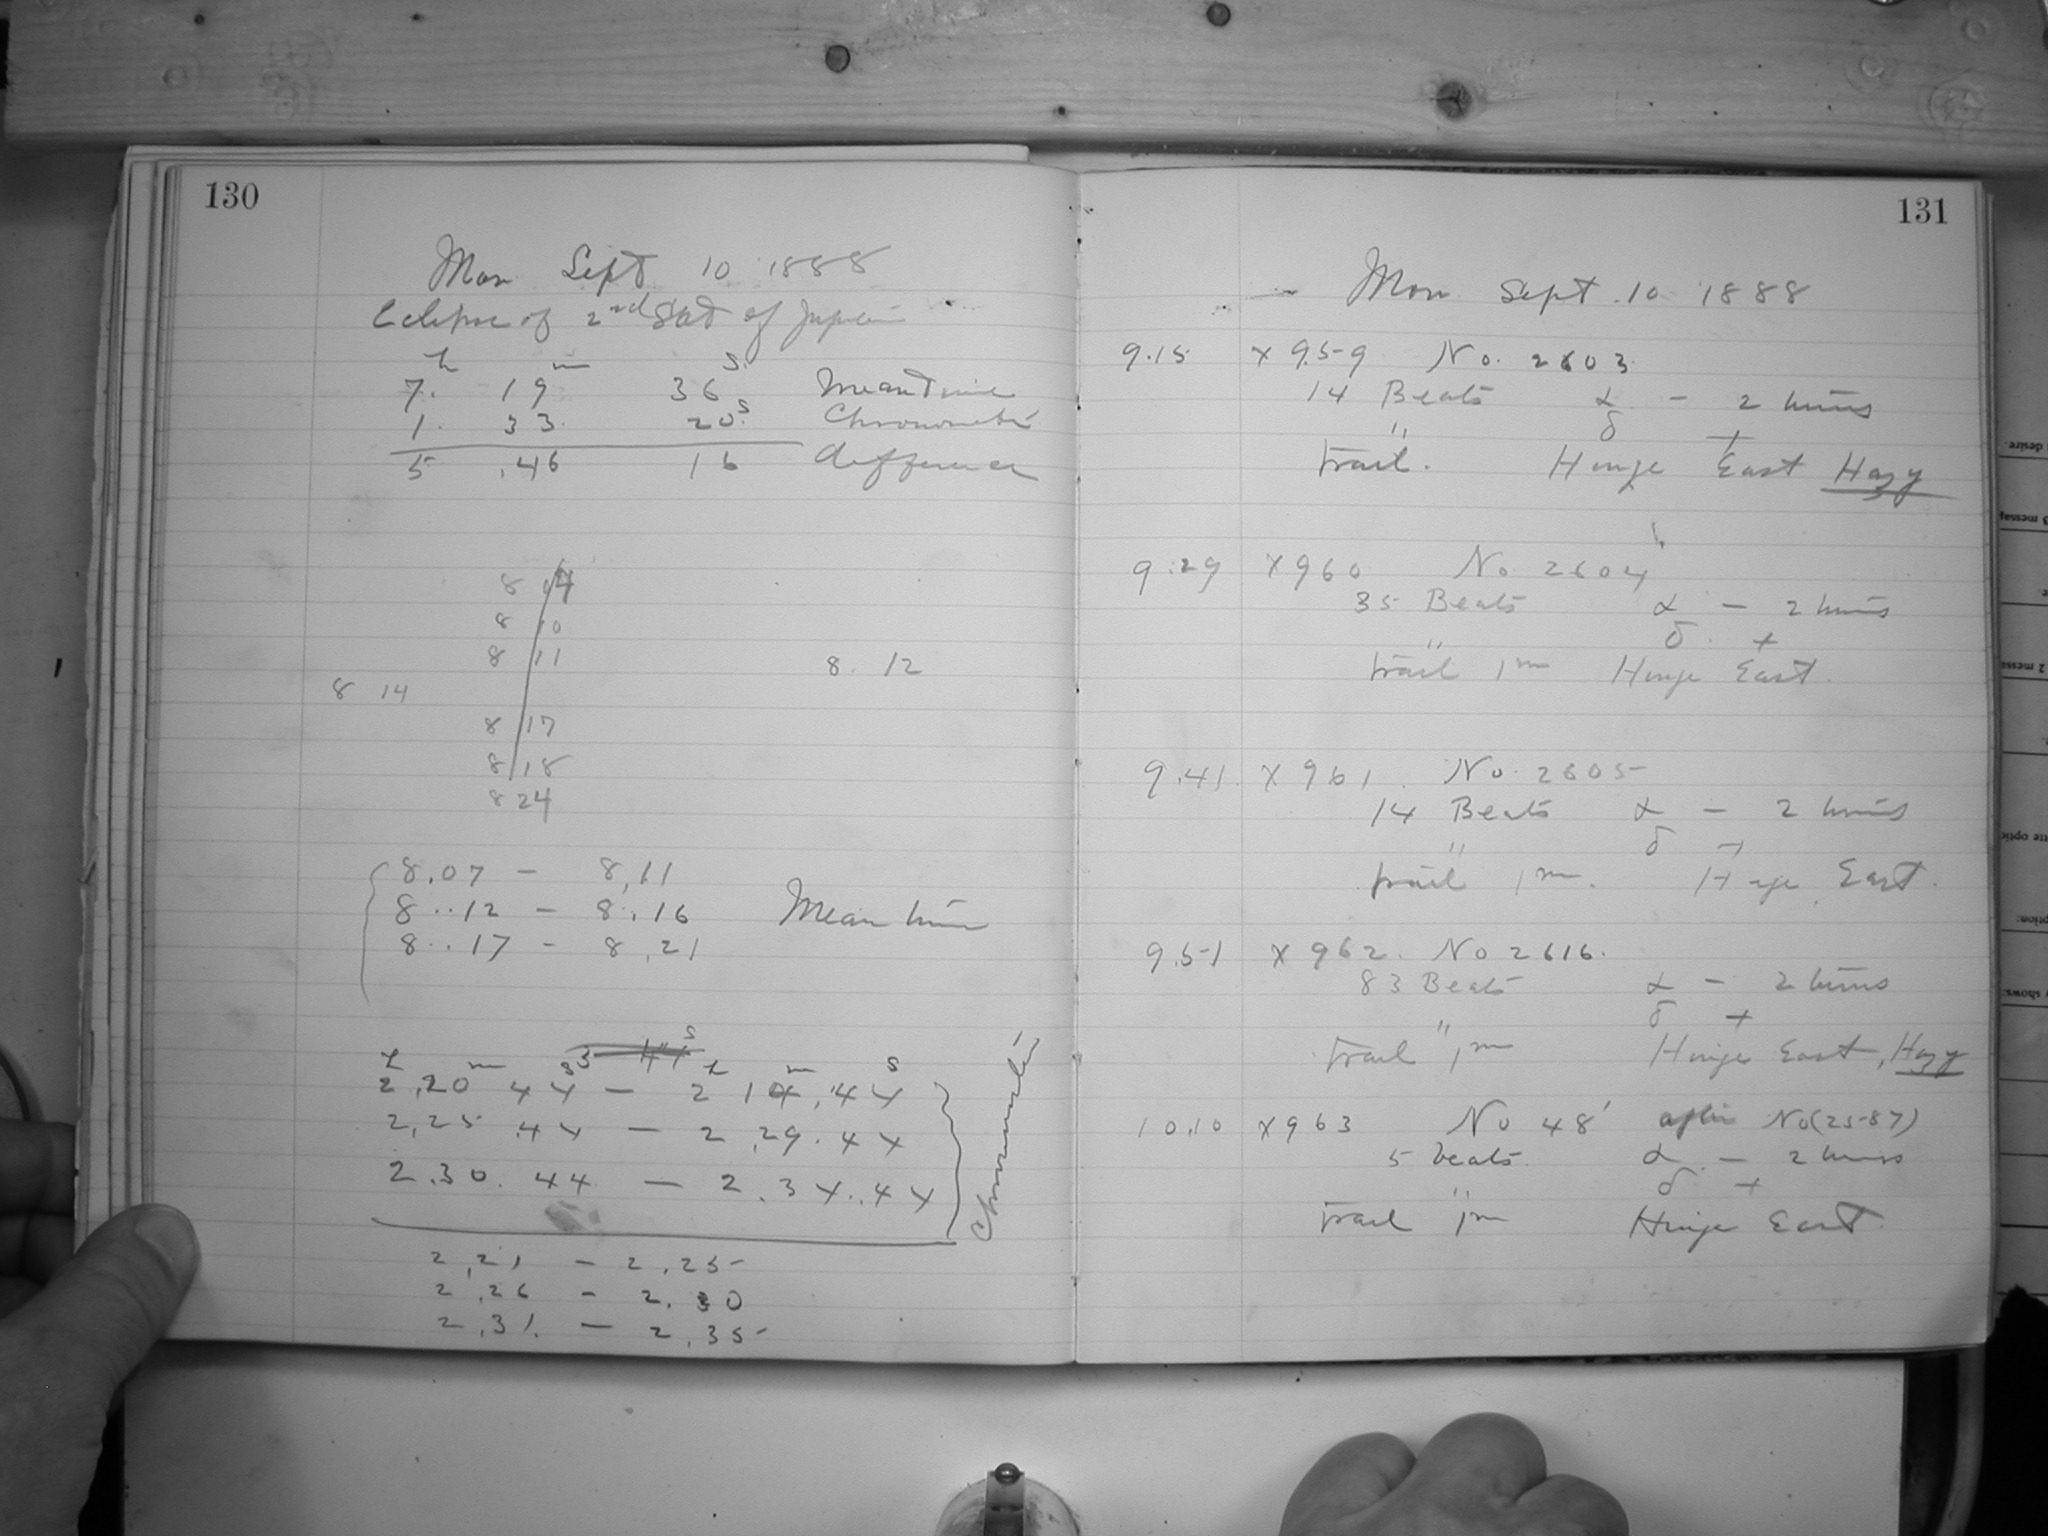 130
Mon Sept 10 1888
Eclipse of 2nd Sat of Jupiter
h m s
7. 19 36 Mean Time
1. 33. 20s Chronometer
5 .46 16 difference
8 07
8 10
8 11
8. 12
8 14
8 17
8 18
8 24
8.07 - 8.11
8..12 - 8..16 Mean time
8..17 - 8.21
h m s h m s
2.20 44 - 2 14.44
2.25 44 - 2.29.44
2.30. 44. - 2.34..44
Chronometer
2.21 - 2.25
2.26 - 2.30
2.31. - 2.35
131
Mon Sept. 10 1888
9.15 X 959 No. 2603.
14 Beats α - 2 turns
" δ +
trail. Hinge East Hazy
9.29 X 960 No 2604
35 Beats α - 2 turns
" δ. +
trail 1m Hinge East.
9.41. X 961. No. 2605
14 Beats α - 2 turns
" δ +
trail 1m. Hinge East.
9.51 X 962. No 2616.
83 Beats α - 2 turns
" δ +
trail 1m Hinge East, Hazy
10.10 X 963 No 48' after No (2587)
5 beats. α - 2 turns
" δ +
trail 1m Hinge East.